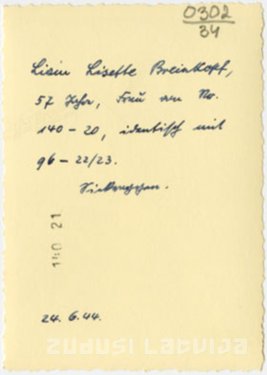 0302
34
Lisette Breinkopf,
57 Jahre, Frau von No.
140 - 20, identisch mit
96 - 22/23.
140 21
24. 6. 44.
ZUDUSI LATVIJA